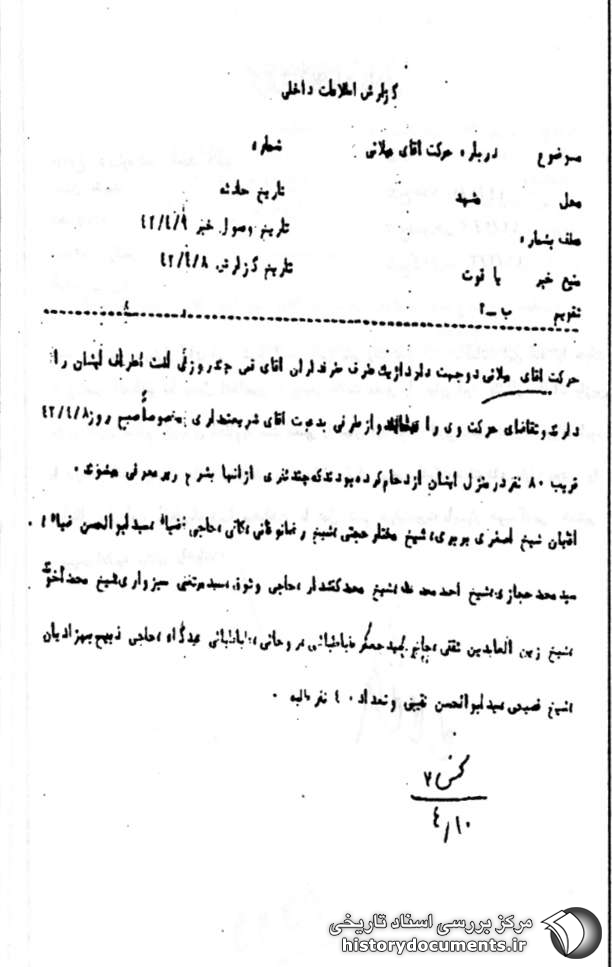 گزارش اطلاعات داخلی
موضوع درباره حرکت آقای میلانی شماره
محل مشهد تاریخ حادثه
عطف بشماره تاریخ وصول خبر ۴۲/۴/۹
منبع خبر یاقوت تاریخ گزارش ۴۲/۴/۸
تقویم ب-۲
حرکت آقای میلانی دوجهت دارد از یک طرف طرفداران آقای قمی چند روزی است اطراف ایشان را
دارند و تقاضای حرکت وی را و از طرفی بدعوت آقای شریعتمداری مخصوصاً صبح روز ۴۲/۴/۸
قریب ۸۰ نفر در منزل ایشان ازدحام کرده بودند که چند نفری از آنها بشرح زیر معرفی میشوند.
آقایان شیخ اصغری بربری، شیخ مختار حجتی، شیخ رمضانوقانی، کانی، حاجی ضیاء، سید ابوالحسن ضیاء،
سید محمد حجازی، شیخ احمد محمد، شیخ محمد کفشدار، حاجی وثوق، سید مرتضی سبزواری، شیخ محمد آخوند
شیخ زین العابدین ثقفی، سید جعفر طباطبائی، روحانی، طباطبائی عیدگاه، حاجی ذبیح بهزادیان
شیخ فصیحی، سید ابوالحسن نقیبی و تعداد ۴۰ نفر طلبه.
۷
۴/۱۰
مرکز بررسی اسناد تاریخی
historydocuments.ir